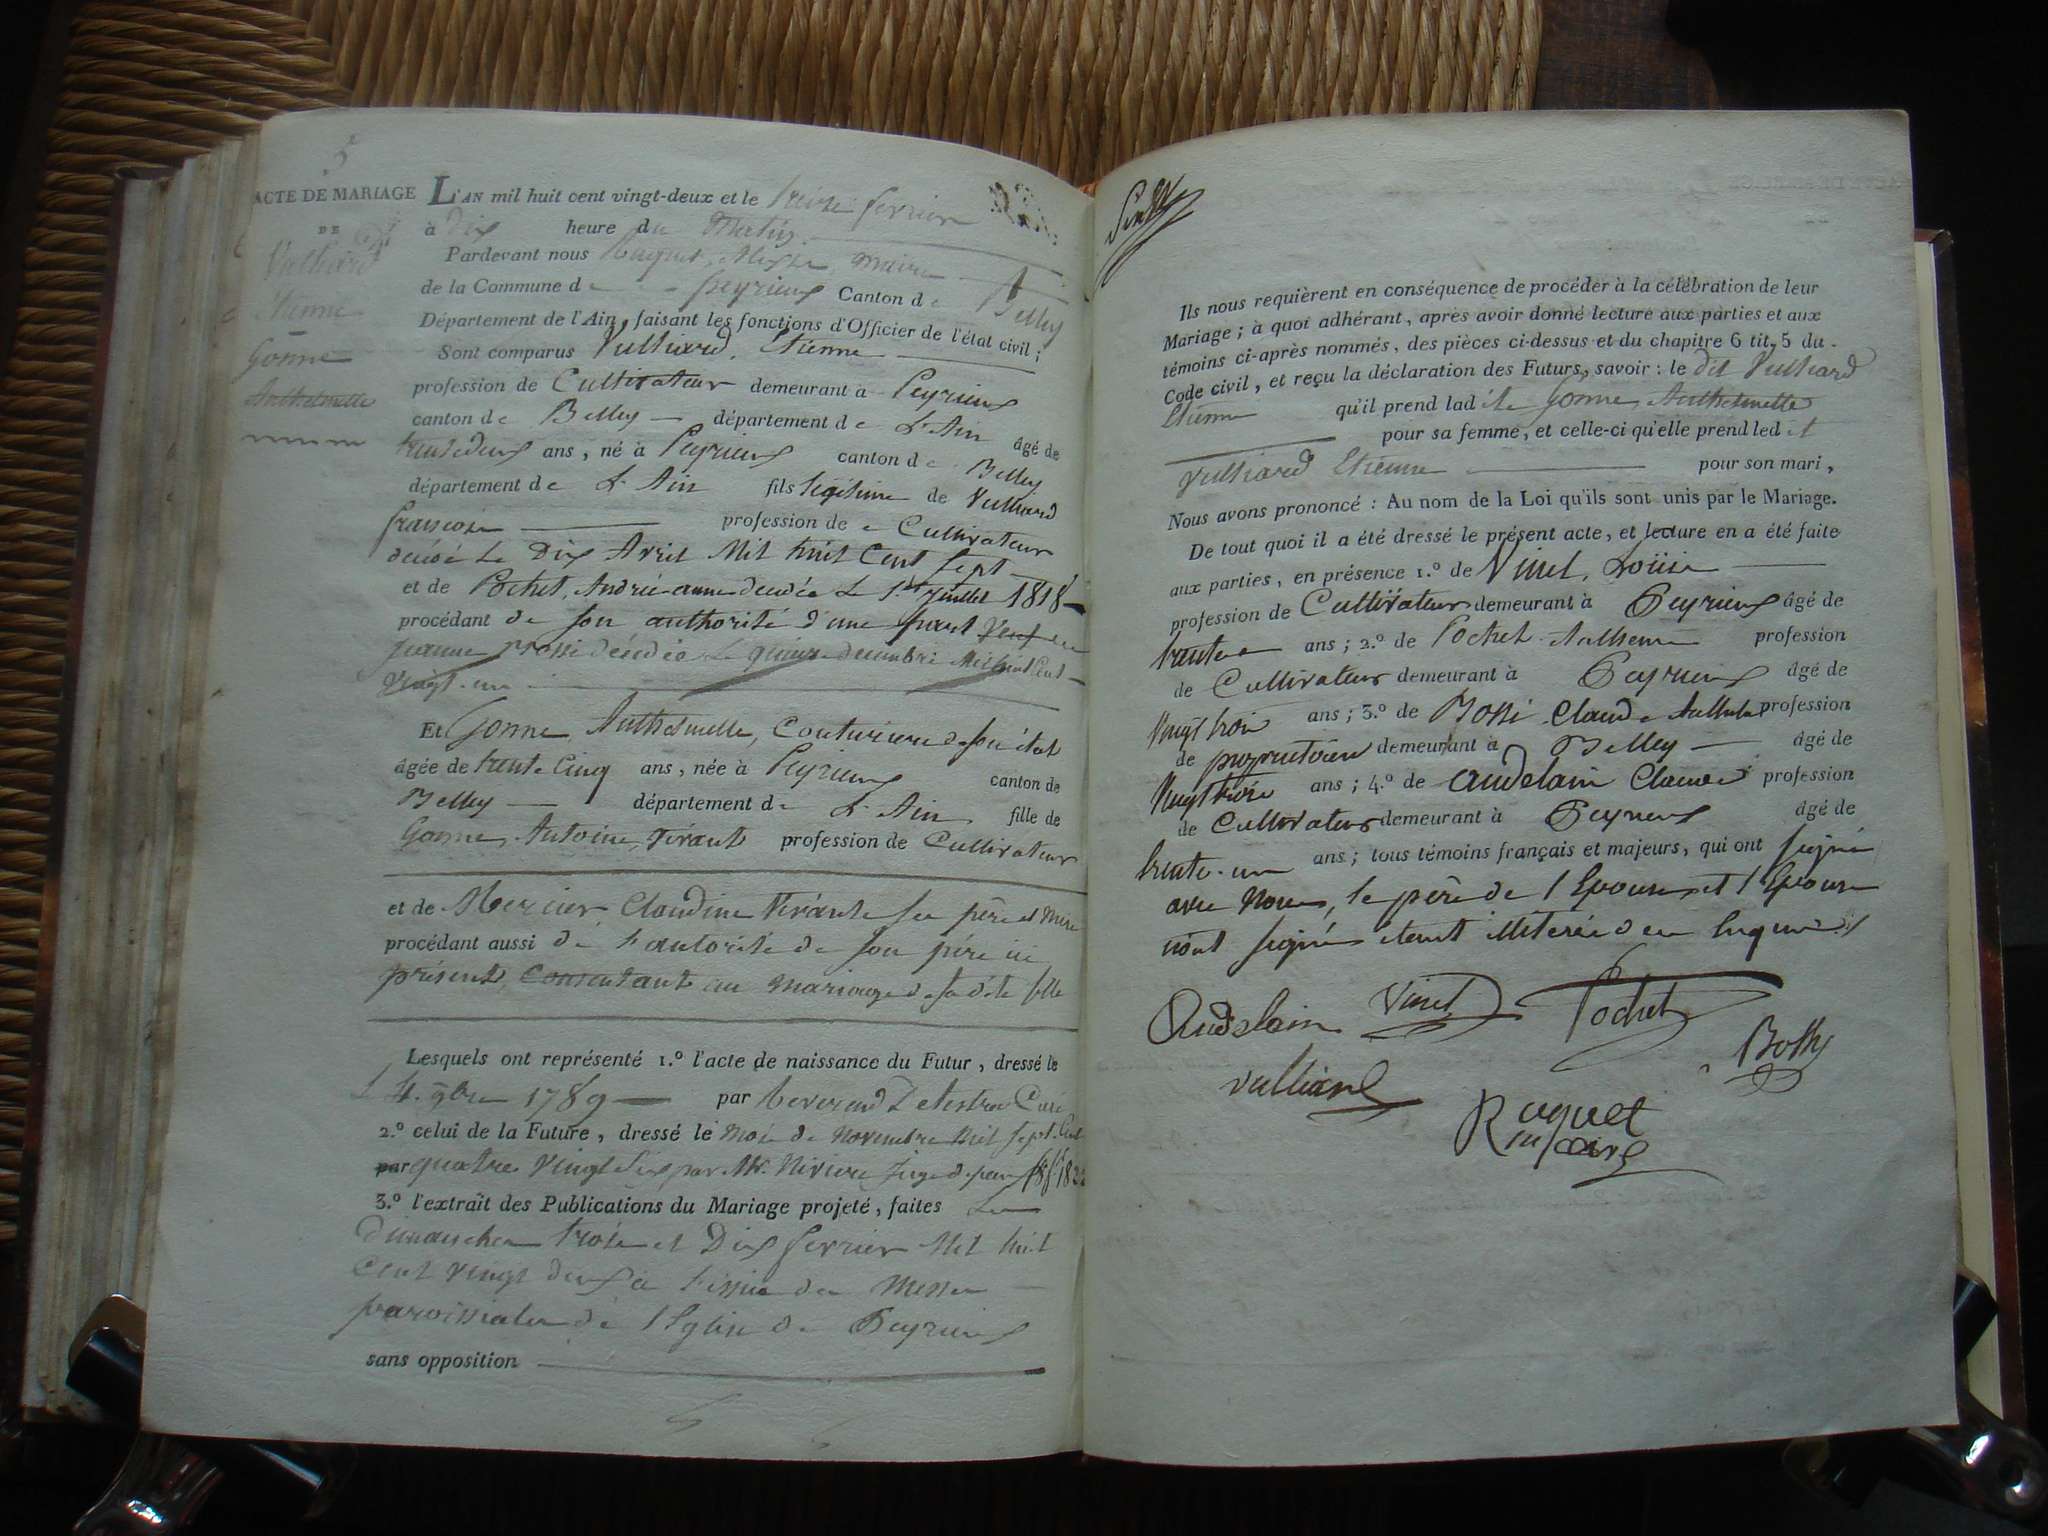 2e
ACTE DE MARIAGE
DE
Vulliard
Etienne
Gonne
Anthelmette
L'AN mil huit cent vingt-deux et le treize fevrier
à dix heure du Matin
Pardevant nous Ruquet, maire
de la Commune de Peyrieux Canton de Belley
Département de l'Ain, faisant les fonctions d'Officier de l'état civil;
Sont comparus Vulliard, Etienne
profession de Cultivateur demeurant à Peyrieux
canton de Belley département de L'Ain âgé de
trentedeux ans, né à Peyrieux canton de Belley
département de L'Ain fils legitime de Vulliard
francois profession de Cultivateur
décédé Le Dix Avril Mil huit Cent Sept
et de Pochet, Andrée anne décédée Le 1er Juillet 1818
procédant de son authorité d'une part Veuf de
jeanne décédée Le quinze decembre Mil huit Cent
vingt-un
Et Gonne, Anthelmette, Couturiere de son état
âgée de trente Cinq ans, née à Peyrieux canton de
Belley département de L'Ain fille de
Gonne, Antoine, vivant profession de Cultivateur
et de Mercier Claudine Vivante ses père et mere
procédant aussi de l'autorité de son père ici
présent, Consentant au mariage de sa dite fille
Lesquels ont représenté 1.º l'acte de naissance du Futur, dressé le
Le 4. 9bre 1789 par Reverend Curé
2.º celui de la Future, dressé le mois de Novembre Mil Sept Cent
par quatre Vingt Six par Mr. Juge de paix 1822
3.º l'extrait des Publications du Mariage projeté, faites Les
dimanches trois et Dix fevrier Mil huit
Cent vingt deux à l'issue des Messes
paroissiales de l'Eglise de Peyrieux
sans opposition
Ils nous requièrent en conséquence de procéder à la célébration de leur
Mariage; à quoi adhérant, après avoir donné lecture aux parties et aux
témoins ci-après nommés, des pièces ci-dessus et du chapitre 6 tit. 5 du
Code civil, et reçu la déclaration des Futurs, savoir: le dit Vulliard
Etienne qu'il prend lad ite Gonne, Anthelmette
pour sa femme, et celle-ci qu'elle prend led it
Vulliard Etienne pour son mari,
Nous avons prononcé: Au nom de la Loi qu'ils sont unis par le Mariage.
De tout quoi il a été dressé le présent acte, et lecture en a été faite
aux parties, en présence 1.º de Vinet, Loüis
profession de Cultivateur demeurant à Peyrieux âgé de
trente ans; 2.º de Pochet Anthelme profession
de Cultivateur demeurant à Peyrieux âgé de
Vingt trois ans; 3.º de Claude Anthelme profession
de proprietaire demeurant à Belley âgé de
Vingt trois ans; 4.º de Audelain Claude profession
de Cultivateur demeurant à Peyrieux âgé de
trente-un ans; tous témoins français et majeurs, qui ont signé
avec Nous, le père de l'Epouse et l'Epouse
n'ont signés etant illiterés de ce Enquis
Audelain Vinet Pochet
Vulliard
Ruquet
maire